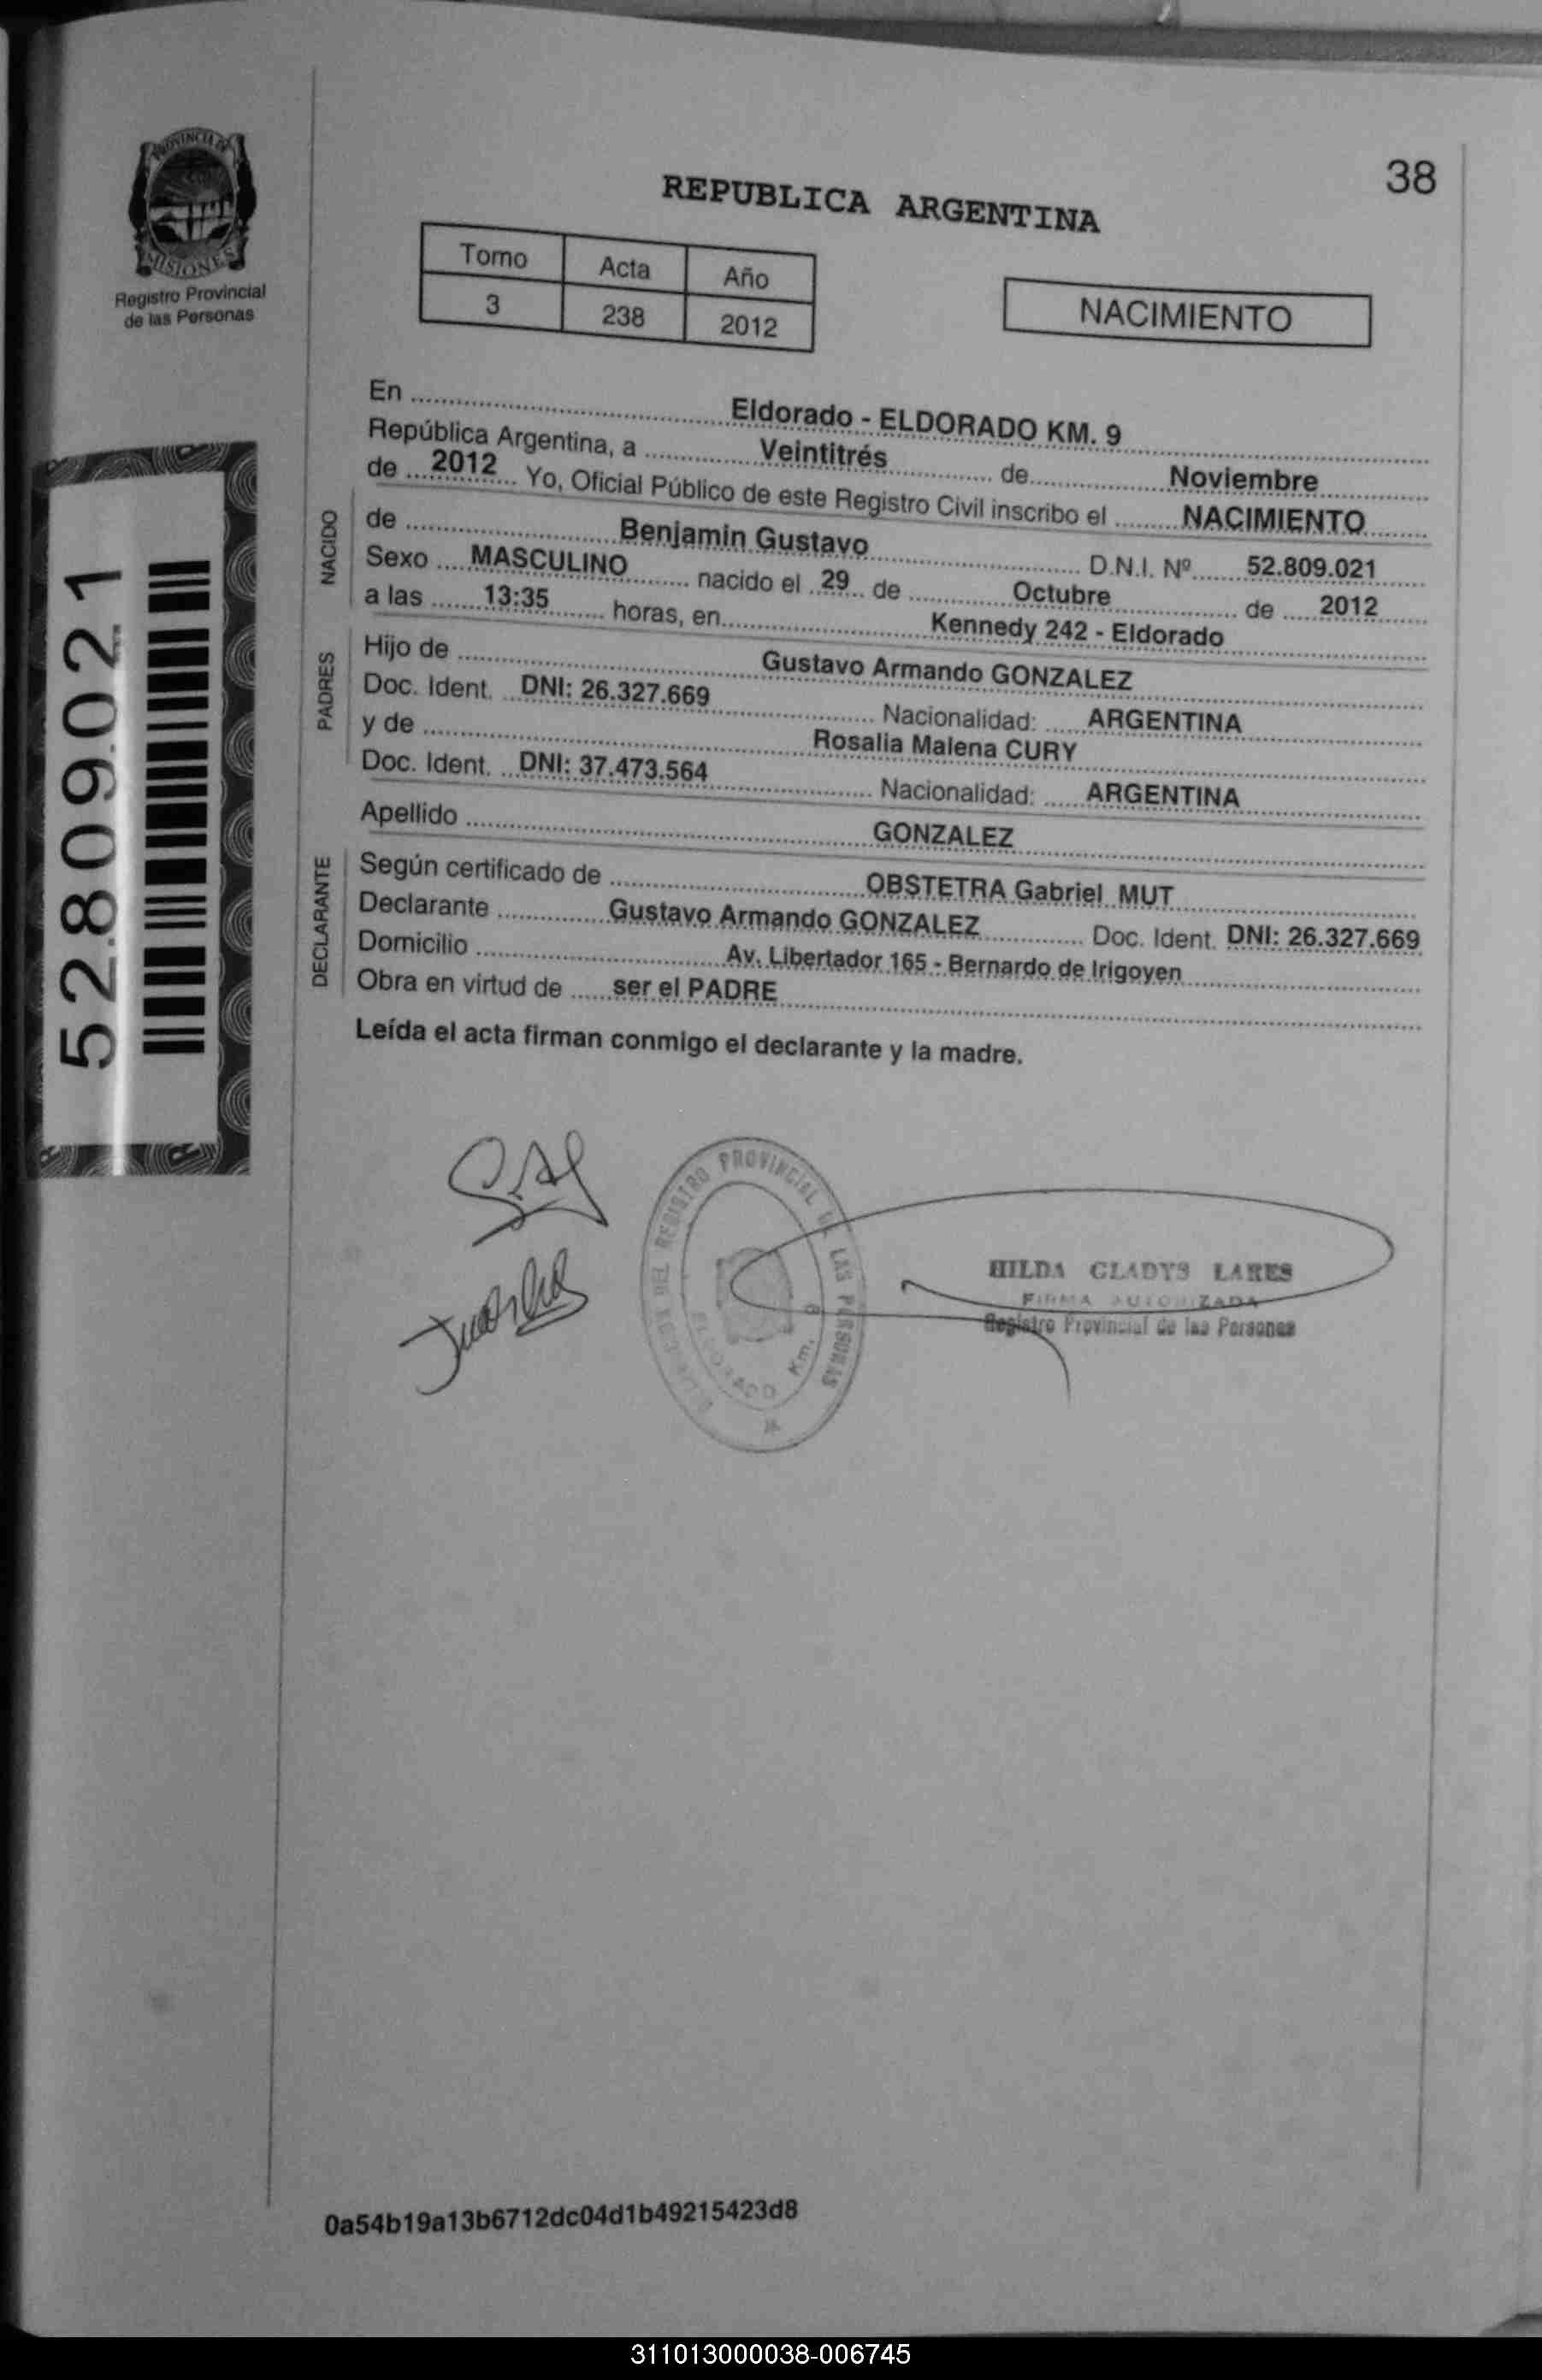 PROVINCIA DE
MISIONES
Registro Provincial
de las Personas
38
REPUBLICA ARGENTINA
Tomo Acta Año
3 238 2012
NACIMIENTO
52.809.021
En Eldorado - ELDORADO KM. 9
República Argentina, a Veintitrés de Noviembre
de 2012 Yo, Oficial Público de este Registro Civil inscribo el NACIMIENTO
NACIDO
de Benjamin Gustavo D.N.I. Nº 52.809.021
Sexo MASCULINO nacido el 29 de Octubre de 2012
a las 13:35 horas, en Kennedy 242 - Eldorado
PADRES
Hijo de Gustavo Armando GONZALEZ
Doc. Ident. DNI: 26.327.669 Nacionalidad: ARGENTINA
y de Rosalia Malena CURY
Doc. Ident. DNI: 37.473.564 Nacionalidad: ARGENTINA
Apellido GONZALEZ
DECLARANTE
Según certificado de OBSTETRA Gabriel MUT
Declarante Gustavo Armando GONZALEZ Doc. Ident. DNI: 26.327.669
Domicilio Av. Libertador 165 - Bernardo de Irigoyen
Obra en virtud de ser el PADRE
Leída el acta firman conmigo el declarante y la madre.
DEL REGISTRO PROVINCIAL DE LAS PERSONAS
ELDORADO Km.
HILDA GLADYS LARES
FIRMA AUTORIZADA
Registro Provincial de las Personas
0a54b19a13b6712dc04d1b49215423d8
311013000038-006745